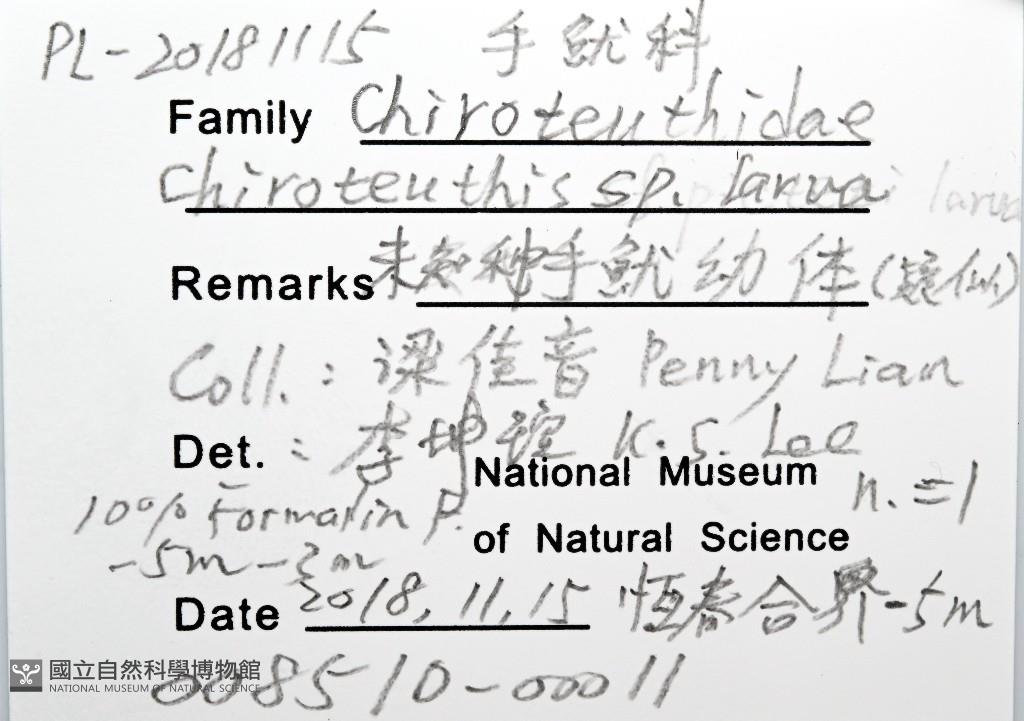 PL-20181115 手魷科
Family Chiroteuthidae
Chiroteuthis sp. larva
larva
Remarks 未知种手魷幼体(疑似)
Coll.: 梁佳音 Penny Lian
Det.: 李坤瑄 K.S. Lee
National Museum n.=1
10% Formalin F.
of Natural Science
-5m-2m
Date 2018.11.15 恒春合界-5m
008510-00011
國立自然科學博物館
NATIONAL MUSEUM OF NATURAL SCIENCE